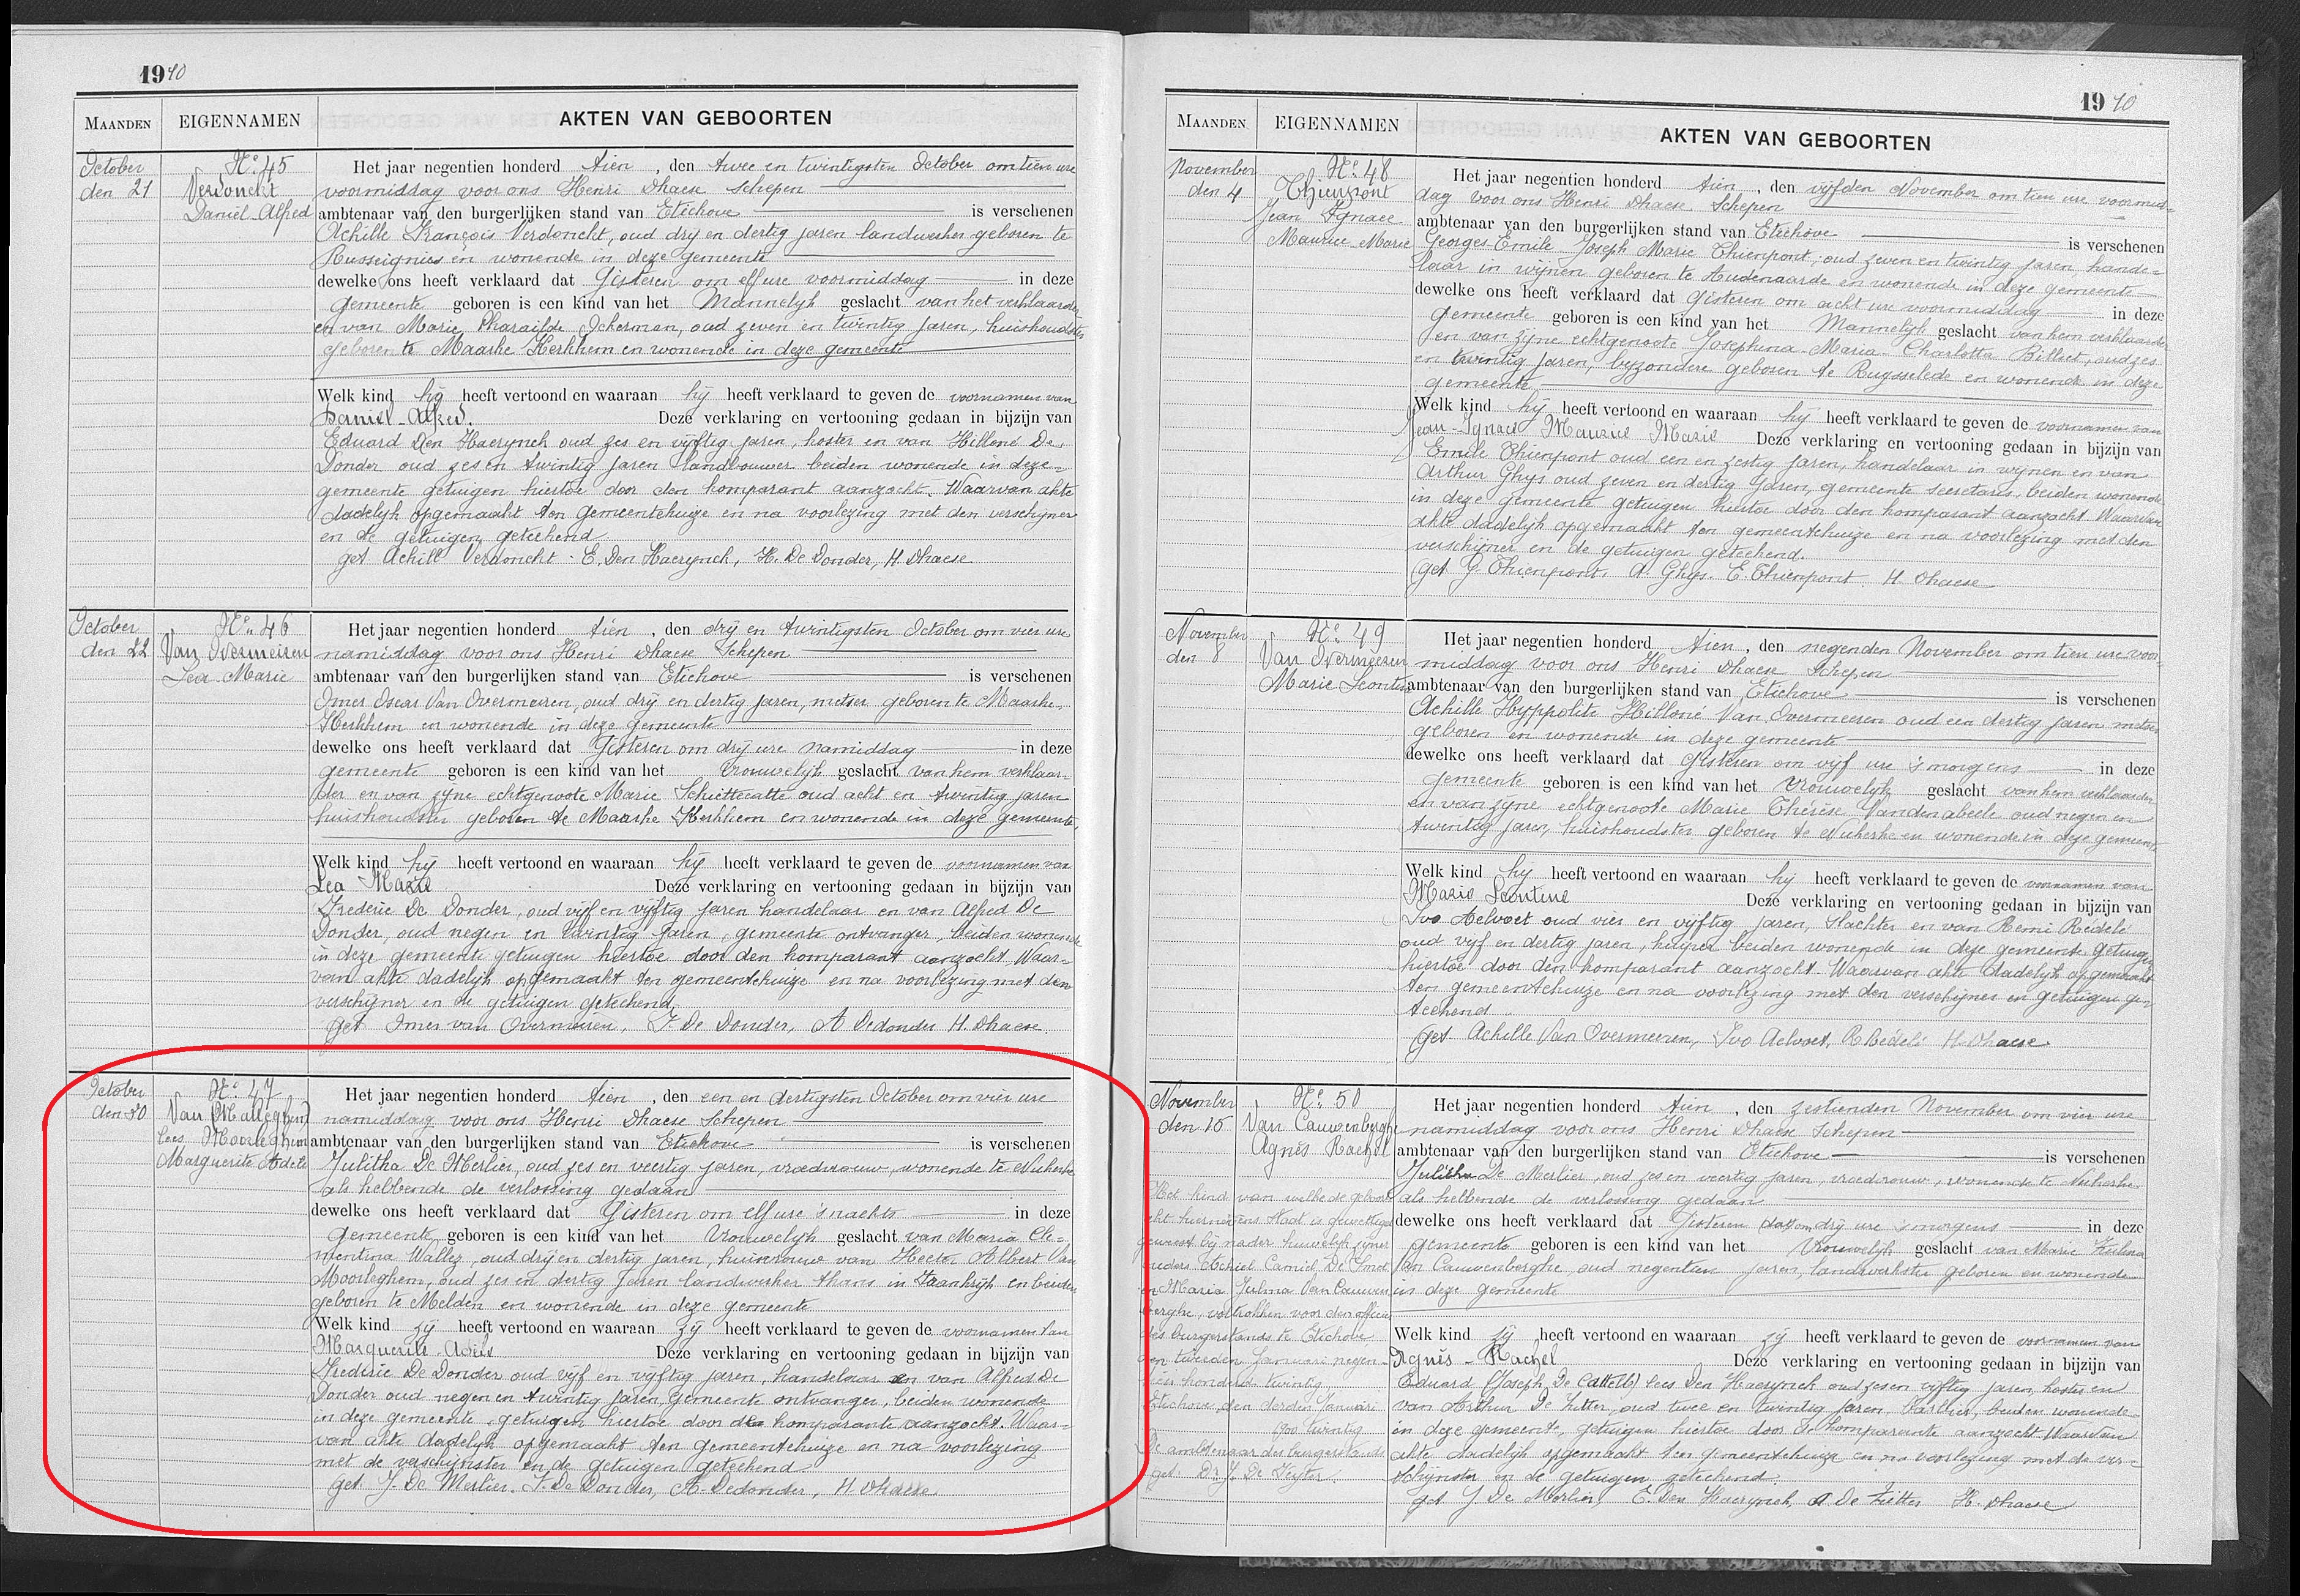 1910
MAANDEN EIGENNAMEN AKTEN VAN GEBOORTEN
October
den 21
Nº 45
Verdonckt
Daniel Alfred
Het jaar negentien honderd tien, den twee en twintigsten October om tien ure
voormiddag voor ons Henri Dhaese Schepen
ambtenaar van den burgerlijken stand van Etichove is verschenen
Achille François Verdonckt, oud drij en dertig jaren landwerker geboren te
Russeignies en wonende in deze gemeente
dewelke ons heeft verklaard dat Gisteren om elf ure voormiddag in deze
gemeente geboren is een kind van het Mannelijk geslacht van het verklaarder
en van Marie Pharaïlde Ickerman, oud zeven en twintig jaren, huishoudster
geboren te Maarke Kerkhem en wonende in deze gemeente
Welk kind hij heeft vertoond en waaraan hij heeft verklaard te geven de voornamen van
Daniel-Alfred. Deze verklaring en vertooning gedaan in bijzijn van
Eduard Den Haerynck oud zes en vijftig jaren, koster en van Hilloné De
Donder oud zes en twintig jaren landbouwer beiden wonende in deze
gemeente getuigen hiertoe door den komparant aanzocht. Waarvan akte
dadelijk opgemaakt ten gemeentehuize en na voorlezing met den verschijner
en de getuigen geteekend
get Achill Verdonckt. E. Den Haerynck, H. De Donder, H. Dhaese
October
den 22
Nº 46
Van Overmeiren
Lea Marie
Het jaar negentien honderd tien, den drij en twintigsten October om vier ure
namiddag voor ons Henri Dhaese Schepen
ambtenaar van den burgerlijken stand van Etichove is verschenen
Omer Oscar Van Overmeiren, oud drij en dertig jaren, metser geboren te Maarke-
Kerkhem en wonende in deze gemeente
dewelke ons heeft verklaard dat Gisteren om drij ure namiddag in deze
gemeente geboren is een kind van het Vrouwelijk geslacht van hem verklaar-
der en van zijne echtgenoote Marie Schiettecatte oud acht en twintig jaren
huishoudster geboren te Maarke Kerkhem en wonende in deze gemeente,
Welk kind hij heeft vertoond en waaraan hij heeft verklaard te geven de voornamen van
Lea Marie Deze verklaring en vertooning gedaan in bijzijn van
Frederic De Donder, oud vijf en vijftig jaren handelaar en van Alfred De
Donder, oud negen en twintig jaren, gemeente ontvanger, beiden wonende
in deze gemeente getuigen hiertoe door den komparant aanzocht. Waar-
van akte dadelijk opgemaakt ten gemeentehuize en na voorlezing met den
verschijner en de getuigen geteekend,
get Omer van Overmeiren, F. De Donder, A Dedonder H. Dhaese
October
den 30
Nº 47
Van (Malleghem)
lees Moorleghem
Marguerite Adele
Het jaar negentien honderd tien, den een en dertigsten October om vier ure
namiddag voor ons Henri Dhaese Schepen
ambtenaar van den burgerlijken stand van Etichove is verschenen
Julitha De Merlier, oud zes en veertig jaren, vroedvrouw, wonende te Nukerke
als hebbende de verlossing gedaan
dewelke ons heeft verklaard dat Gisteren om elf ure 's nachts in deze
gemeente geboren is een kind van het Vrouwelijk geslacht van Maria Cle-
mentina Wallez, oud drij en dertig jaren, huisvrouw van Hector Albert Van
Moorleghem, oud zes en dertig jaren landwerker thans in Frankrijk en beiden
geboren te Melden en wonende in deze gemeente
Welk kind zij heeft vertoond en waaraan zij heeft verklaard te geven de voornamen van
Marguerite-Adele Deze verklaring en vertooning gedaan in bijzijn van
Frederic De Donder oud vijf en vijftig jaren, handelaar en van Alfred De
Donder oud negen en twintig jaren, Gemeente ontvanger, beiden wonende
in deze gemeente, getuigen hiertoe door de komparante aanzocht. Waar-
van akte dadelijk opgemaakt ten gemeentehuize en na voorlezing
met de verschijnster en de getuigen geteekend
get J. De Merlier. F. De Donder, A. Dedonder, H. Dhaese
1910
MAANDEN EIGENNAMEN AKTEN VAN GEBOORTEN
November
den 4
Nº 48
Thienpont
Jean Ignace
Maurice Marie
Het jaar negentien honderd tien, den vijfden November om tien ure voormid-
dag voor ons Henri Dhaese Schepen
ambtenaar van den burgerlijken stand van Etichove is verschenen
Georges Emile Joseph Marie Thienpont, oud zeven en twintig jaren, hande-
laar in wijnen geboren te Audenaarde en wonende in deze gemeente
dewelke ons heeft verklaard dat Gisteren om acht ure voormiddag in deze
gemeente geboren is een kind van het Mannelijk geslacht van hem verklaarder
en van zijne echtgenoote Josephina-Maria-Charlotta Billiet, oud zes
en twintig jaren, bijzondere geboren te Ruysselede en wonende in deze
gemeente
Welk kind hij heeft vertoond en waaraan hij heeft verklaard te geven de voornamen van
Jean-Ignace Maurice Marie Deze verklaring en vertooning gedaan in bijzijn van
Emile Thienpont oud een en zestig jaren, handelaar in wijnen en van
Arthur Ghijs oud zeven en dertig jaren, gemeente secretaris, beiden wonende
in deze gemeente getuigen hiertoe door den komparant aanzocht Waarvan
akte dadelijk opgemaakt ten gemeentehuize en na voorlezing met den
verschijner en de getuigen geteekend.
get G. Thienpont. A. Ghijs. E. Thienpont H. Dhaese
November
den 8
Nº 49
Van Overmeeren
Marie Leontine
Het jaar negentien honderd tien, den negenden November om tien ure voor-
middag voor ons Henri Dhaese Schepen
ambtenaar van den burgerlijken stand van Etichove is verschenen
Achille Hyppolite Hilloné Van Overmeeren oud een dertig jaren metser
geboren en wonende in deze gemeente
dewelke ons heeft verklaard dat Gisteren om vijf ure 's morgens in deze
gemeente geboren is een kind van het Vrouwelijk geslacht van hem verklaarder
en van zijne echtgenoote Marie Thérèse Vandenabeele oud negen en
twintig jaren, huishoudster geboren te Nukerke en wonende in deze gemeente
Welk kind hij heeft vertoond en waaraan hij heeft verklaard te geven de voornamen van
Marie Leontine Deze verklaring en vertooning gedaan in bijzijn van
Ivo Aelvoet oud vier en vijftig jaren, slachter en van Remi Rédelé
oud vijf en dertig jaren, kuiper beiden wonende in deze gemeente getuigen
hiertoe door den komparant aanzocht. Waarvan akte dadelijk opgemaakt
ten gemeentehuize en na voorlezing met den verschijner en getuigen ge-
teekend.
get. Achille Van Overmeeren, Ivo Aelvoet, R Rédelé H. Dhaese
November
den 15
Nº 50
Van Cauwenberghe
Agnès Rachel
Het kind van welke de geboorte
gewoest bij nader huwelijk zijner
ouders, Etchiel Camiel De Smet
en Maria Zulma Van Cauwen
berghe, voltrokken voor den officier
des burgerstands te Etichove
den tweeden Januari negen-
tien honderd twintig,
Etichove, den derden Januari
1900 twintig
De ambtenaar des burgerstands
get. Dr J. De Keyzer
Het jaar negentien honderd tien, den zestienden November om vier ure
namiddag voor ons Henri Dhaese Schepen
ambtenaar van den burgerlijken stand van Etichove is verschenen
Julitha De Merlier, oud zes en veertig jaren, vroedvrouw, wonende te Nukerke
als hebbende de verlossing gedaan
dewelke ons heeft verklaard dat Gisteren om drij ure 's morgens in deze
gemeente geboren is een kind van het Vrouwelijk geslacht van Marie Zulma
Van Cauwenberghe oud negentien jaren, landwerkster geboren en wonende
in deze gemeente
Welk kind zij heeft vertoond en waaraan zij heeft verklaard te geven de voornamen van
Agnès-Rachel Deze verklaring en vertooning gedaan in bijzijn van
Eduard (Joseph De Cattelle) lees Den Haerynck oud zes en vijftig jaren, koster en
van Arthur De Zutter, oud twee en twintig jaren, beiden wonende
in deze gemeente, getuigen hiertoe door de komparante aanzocht. Waarvan
akte dadelijk opgemaakt ten gemeentehuize en na voorlezing met de ver-
schijnster en de getuigen geteekend.
get J. De Merlier, E. Den Haerynck, A De Zutter H. Dhaese